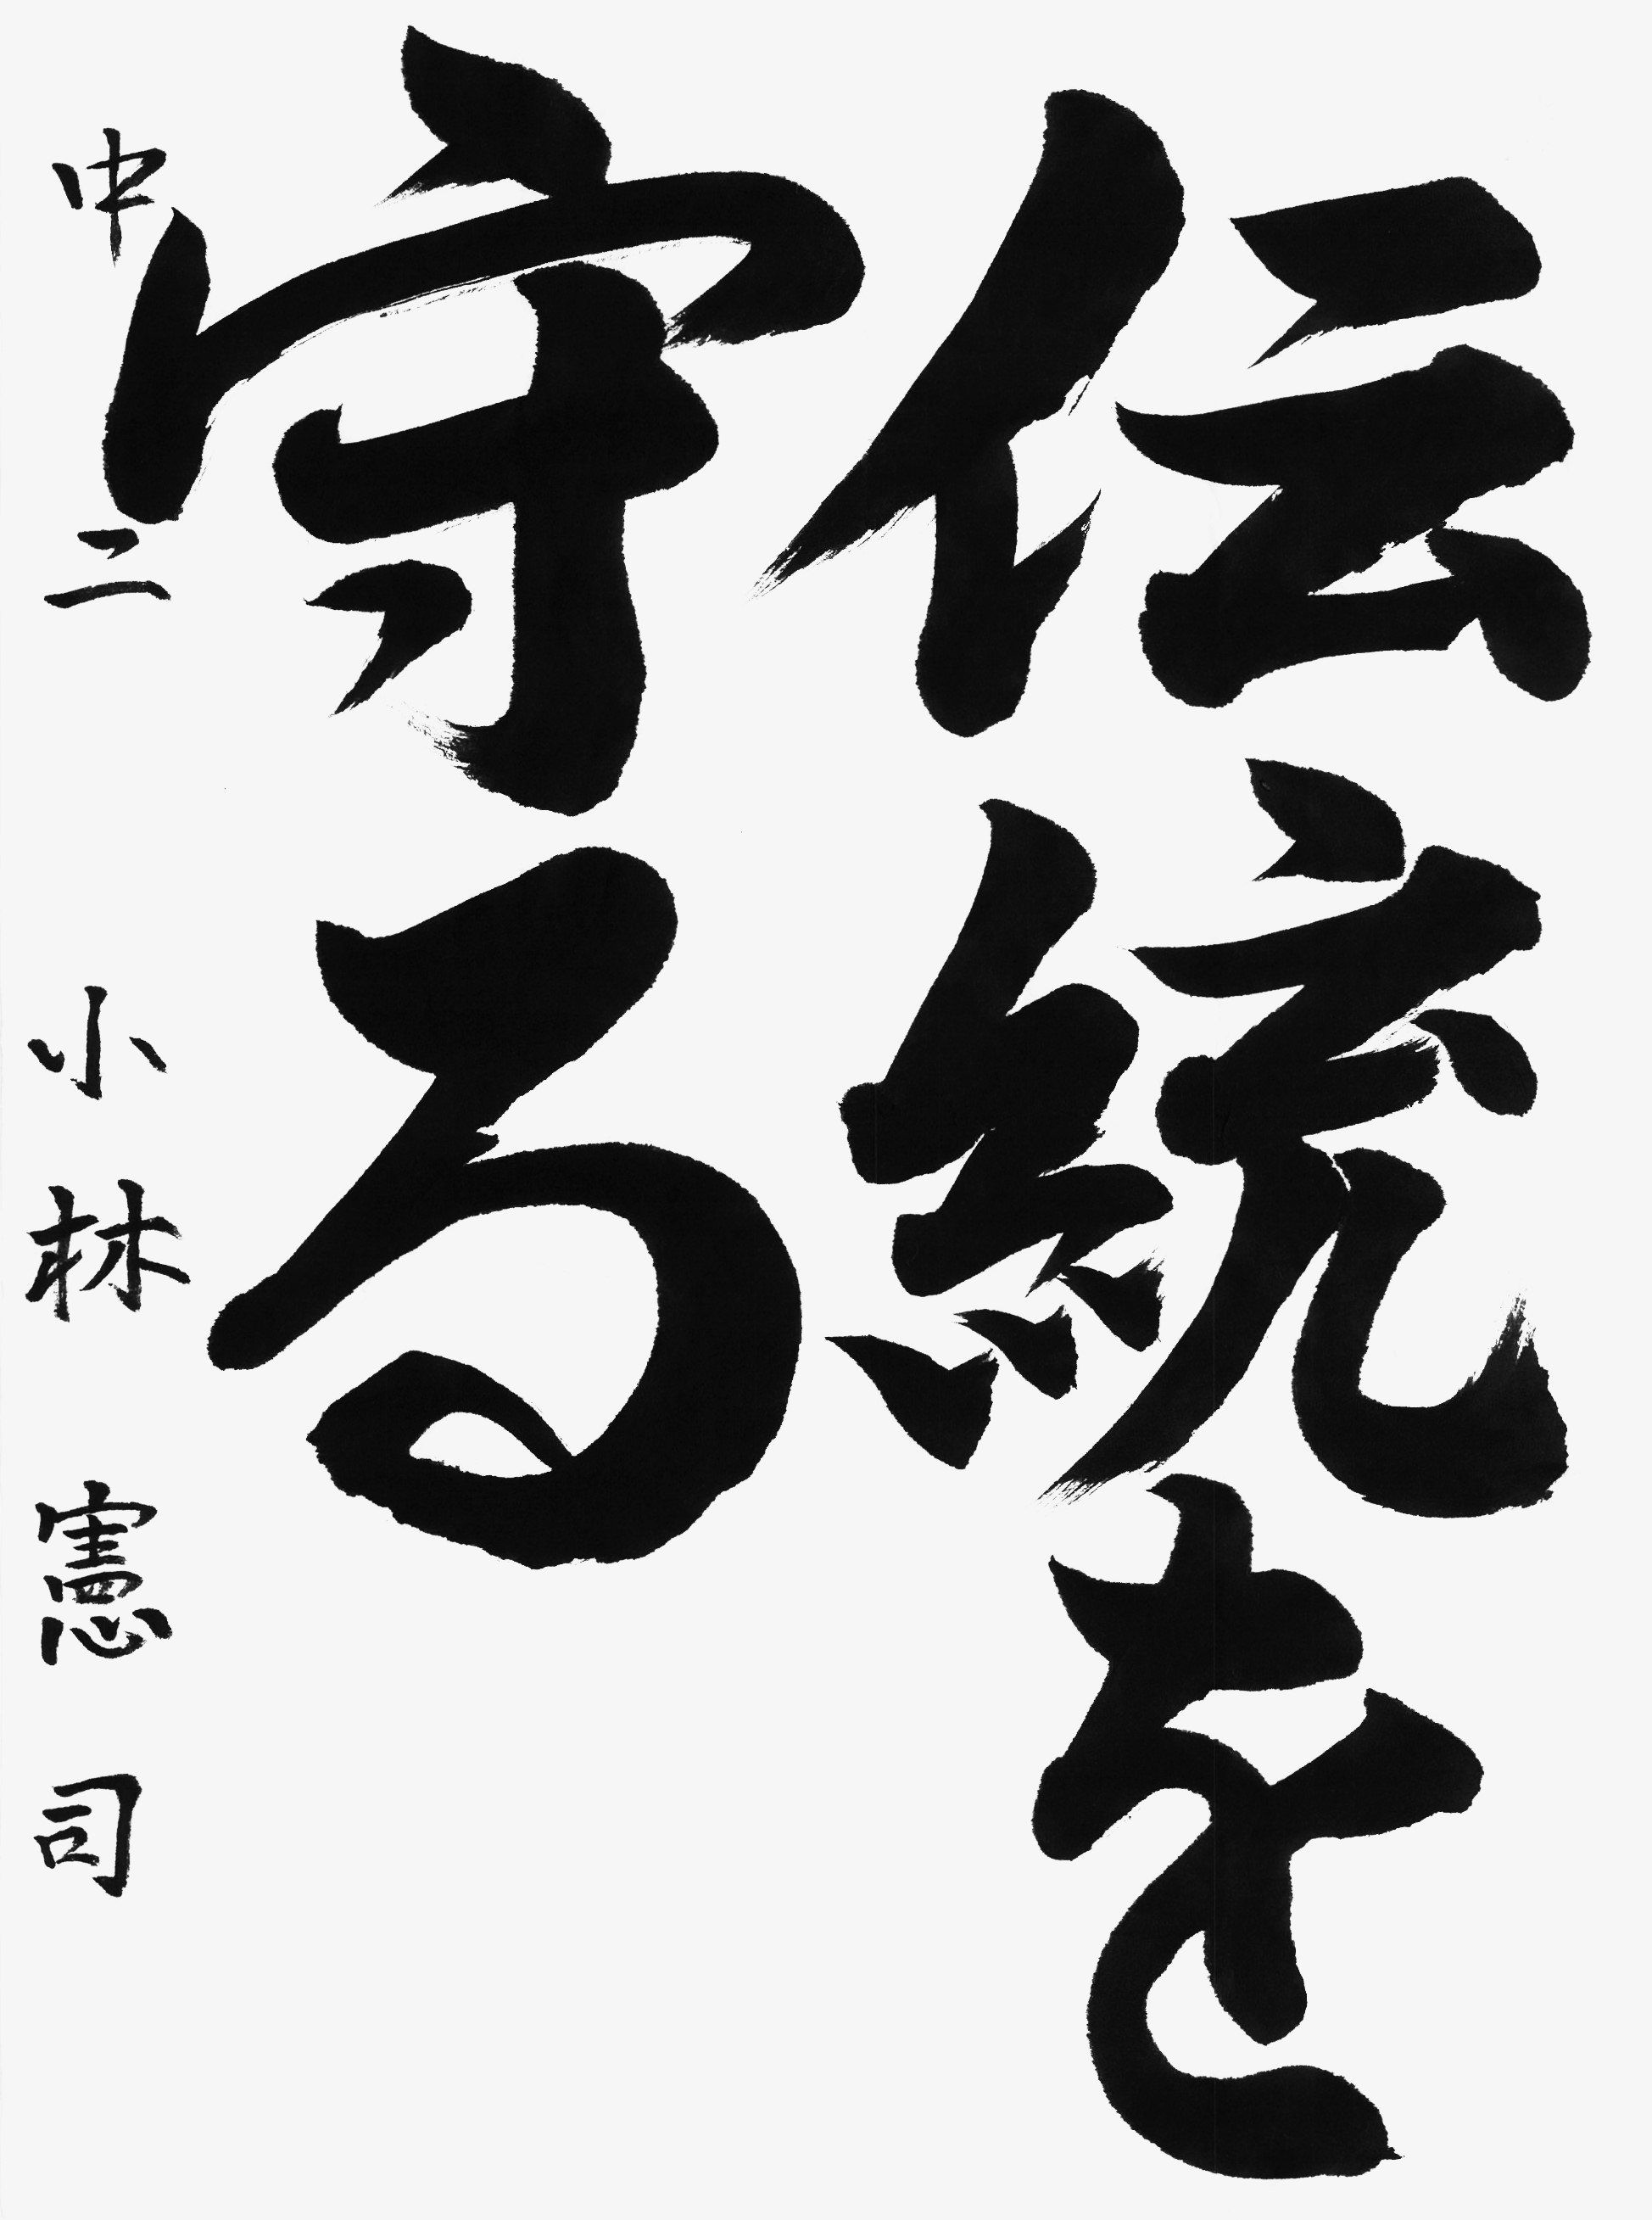 伝統を
守る
中二 小林憲司